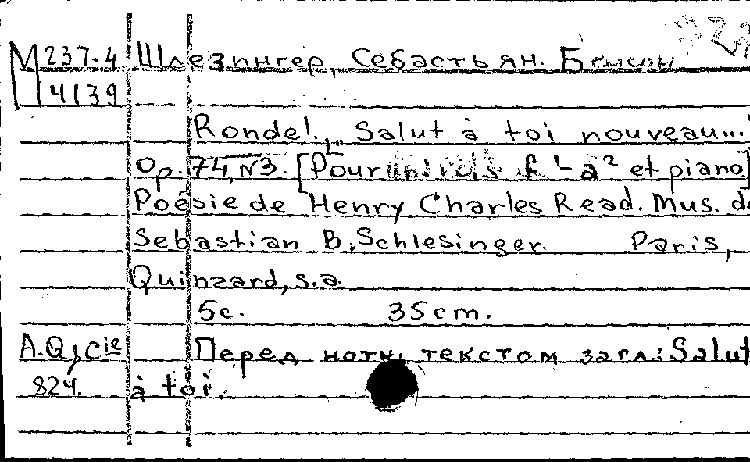 М 237.4 Шлезингер, Себастьян.
4139
Rondel. Salut à toi nouveau...
Op. 74, N3. [Pour f¹-a² et piano]
Poésie de Henry Charles Read. Mus. de
Sebastian B. Schlesinger. Paris,
Quinzard, s.a.
5c. 35cm.
A.Q, Cie Перед нотн. текстом загл.: Salut
824. à toi.